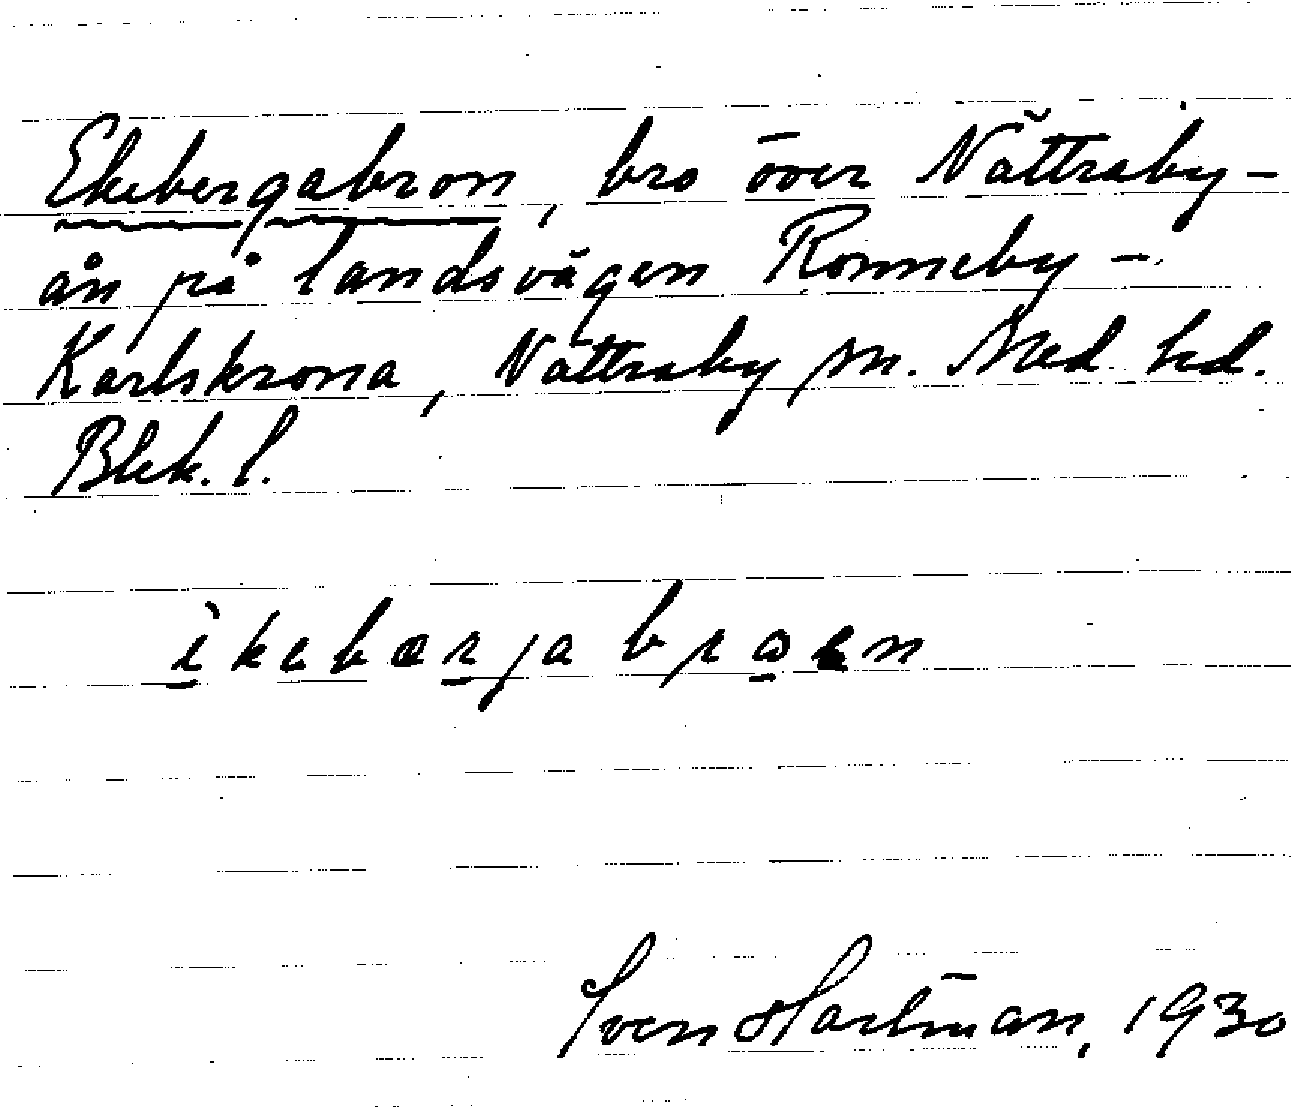 Ekebergabron, bro över Nättraby-
ån på landsvägen Ronneby-
Karlskrona, Nättraby sn. Med. hd.
Blek. l.
ìkebærja brωen
Sven Hartman, 1930